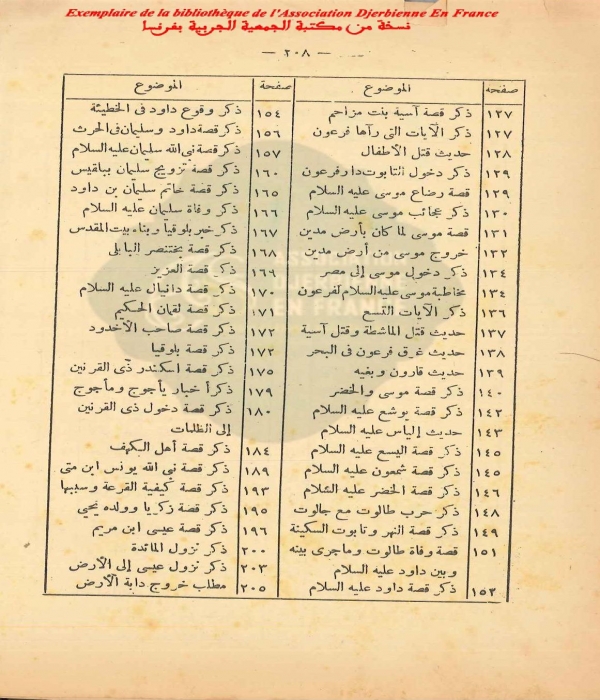 Exemplaire de la bibliothèque de l'Association Djerbienne En France
نسخة من مكتبة الجمعية الجربية بفرنسا
— ٢٠٨ —
صفحة الموضوع
١٢٧ ذكر قصة آسية بنت مزاحم
١٢٧ ذكر الآيات التى رآها فرعون
١٢٨ حديث قتل الأطفال
١٢٩ ذكر دخول التابوت دار فرعون
١٢٩ قصة رضاع موسى عليه السلام
١٣٠ ذكر عجائب موسى عليه السلام
١٣١ قصة موسى لما كان بأرض مدين
١٣٢ خروج موسى من أرض مدين
١٣٤ ذكر دخول موسى إلى مصر
١٣٤ مخاطبة موسى عليه السلام لفرعون
١٣٦ ذكر الآيات التسع
١٣٧ حديث قتل الماشطة وقتل آسية
١٣٨ حديث غرق فرعون فى البحر
١٣٩ حديث قارون وبغيه
١٤٠ ذكر قصة موسى والخضر
١٤٢ ذكر قصة يوشع عليه السلام
١٤٣ حديث إلياس عليه السلام
١٤٥ ذكر قصة اليسع عليه السلام
١٤٥ ذكر قصة شمعون عليه السلام
١٤٦ ذكر قصة الخضر عليه السلام
١٤٨ ذكر حرب طالوت مع جالوت
١٤٩ ذكر قصة النهر وتابوت السكينة
١٥١ قصة وفاة طالوت وماجرى بينه
وبين داود عليه السلام
١٥٢ ذكر قصة داود عليه السلام
صفحة الموضوع
١٥٤ ذكر وقوع داود فى الخطيئة
١٥٦ ذكر قصة داود وسليمان فى الحرث
١٥٧ ذكر قصة نبى الله سليمان عليه السلام
١٦٠ ذكر قصة تزويج سليمان ببلقيس
١٦٥ ذكر قصة خاتم سليمان بن داود
١٦٦ ذكر وفاة سليمان عليه السلام
١٦٧ ذكر خبر بلوقيا وبناء بيت المقدس
١٦٨ ذكر قصة بختنصر البابلى
١٦٩ ذكر قصة العزيز
١٧٠ ذكر قصة دانيال عليه السلام
١٧١ ذكر قصة لقمان الحكيم
١٧٢ ذكر قصة صاحب الأخدود
١٧٢ ذكر قصة بلوقيا
١٧٥ ذكر قصة اسكندر ذى القرنين
١٧٩ ذكر أخبار يأجوج ومأجوج
١٨٠ ذكر قصة دخول ذى القرنين
إلى الظلمات
١٨٤ ذكر قصة أهل الكهف
١٨٩ ذكر قصة نبى الله يونس ابن متى
١٩٣ ذكر قصة كيفية القرعة وسببها
١٩٥ ذكر قصة زكريا وولده يحيى
١٩٦ ذكر قصة عيسى ابن مريم
٢٠٠ ذكر نزول المائدة
٢٠٣ ذكر نزول عيسى إلى الأرض
٢٠٥ مطلب خروج دابة الأرض
ASSOCIATION
DJERBIENNE
EN FRANCE